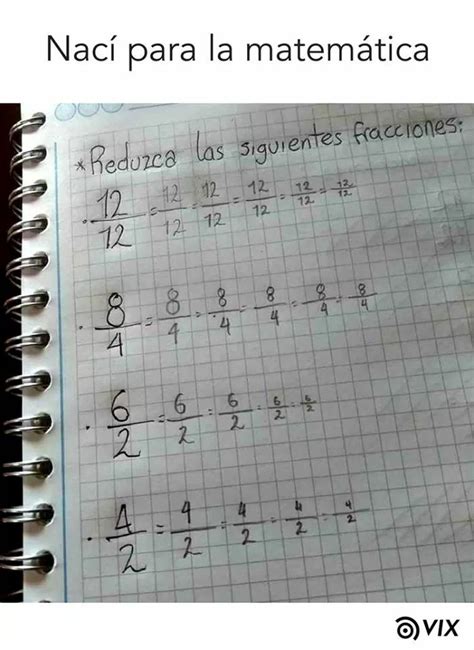 Nací para la matemática
* Reduzca las siguientes fracciones:
· 12/12 = 12/12 = 12/12 = 12/12 = 12/12 = 12/12
· 8/4 = 8/4 = 8/4 = 8/4 = 8/4 = 8/4
· 6/2 = 6/2 = 6/2 = 6/2 = 6/2
· 4/2 = 4/2 = 4/2 = 4/2 = 4/2
VIX